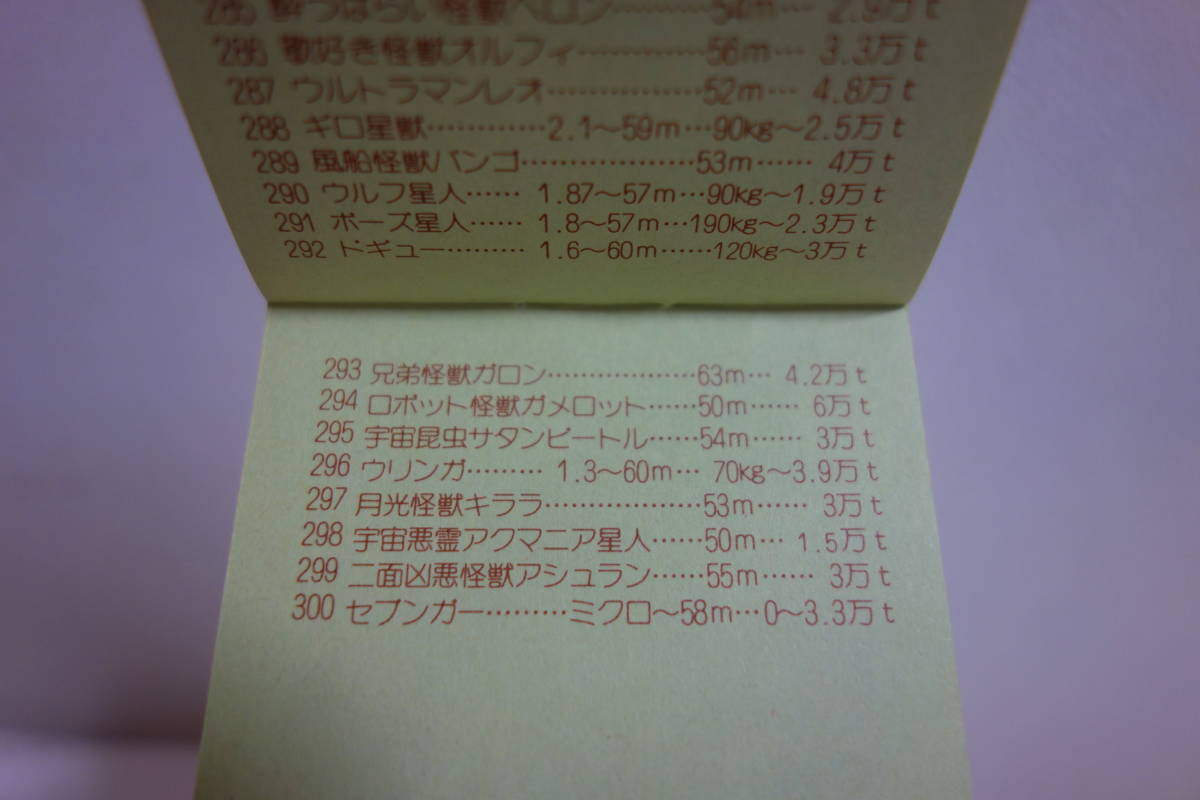 285 酔っぱらい怪獣ベロン…………54m… 2.9万t
286 歌好き怪獣オルフィ……………56m… 3.3万t
287 ウルトラマンレオ………………52m… 4.8万t
288 ギロ星獣…………2.1〜59m…90kg〜2.5万t
289 風船怪獣バンゴ…………………53m…… 4万t
290 ウルフ星人…… 1.87〜57m…90kg〜1.9万t
291 ボーズ星人…… 1.8〜57m…190kg〜2.3万t
292 ドギュー……… 1.6〜60m……120kg〜3万t
293 兄弟怪獣ガロン………………63m… 4.2万t
294 ロボット怪獣ガメロット……50m…… 6万t
295 宇宙昆虫サタンビートル……54m…… 3万t
296 ウリンガ……… 1.3〜60m… 70kg〜3.9万t
297 月光怪獣キララ………………53m…… 3万t
298 宇宙悪霊アクマニア星人……50m… 1.5万t
299 二面凶悪怪獣アシュラン……55m…… 3万t
300 セブンガー………ミクロ〜58m…0〜3.3万t